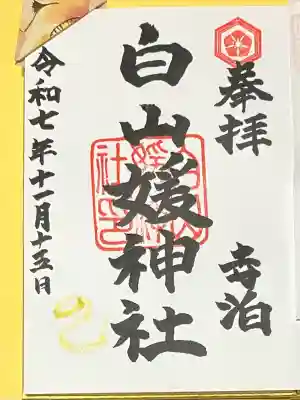 奉拝
寺泊
白山媛神社
令和七年十一月十三日